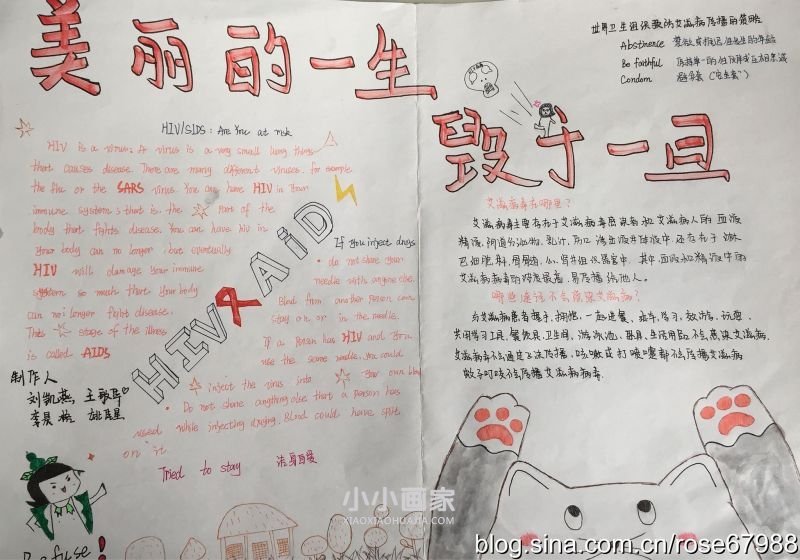 美丽的一生
毁于一旦
世界卫生组织
Abstinence
Be faithful
Condom
HIV/SIDS: Are You at risk
HIV is a virus. A virus is a very small living things
that causes disease. There are many different viruses. for example
the flu or the SARS virus. You can have HIV in Your
immune system s that is. the part of the
body that fights disease. You can have hiv in
Your body can no longer, but eventually
HIV will damage Your immune
system so much that Your body
can no longer fight disease.
This stage of the illness
is called AIDS
HIV AiD
If You inject drugs
• do not share Your
needle with anyone else.
Blood from another person can
stay on or in the needle.
If a person has HIV and You
use the same needle. you could
inject the virus into Your own blood
• Do not share anything else that a person has
used while injecting drugs. Blood could have spilt
on it
Tried to stay 洁身自爱
制作人
刘凯燕
艾滋病毒在哪里?
艾滋病毒主要存在于艾滋病毒感染者和艾滋病人的血液
精液,阴道分泌物,乳汁,伤口渗出液等体液中,还存在于淋
巴细胞,脑组织器官中。其中,血液和精液中的
艾滋病病毒的浓度最高,易传播给他人。
哪些途径不会感染艾滋病?
与艾滋病患者握手,拥抱,一起进餐、乘车、学习、玩
共用学习工具、餐饮具、卫生间、游泳池、不会感染艾滋病
艾滋病毒不会通过飞沫传播,咳嗽或打喷嚏都不会传播艾滋病
蚊子叮咳不会传播艾滋病病毒.
Refuse!
小小画家
XIAOXIAOHUAJIA.COM
blog.sina.com.cn/rose67988